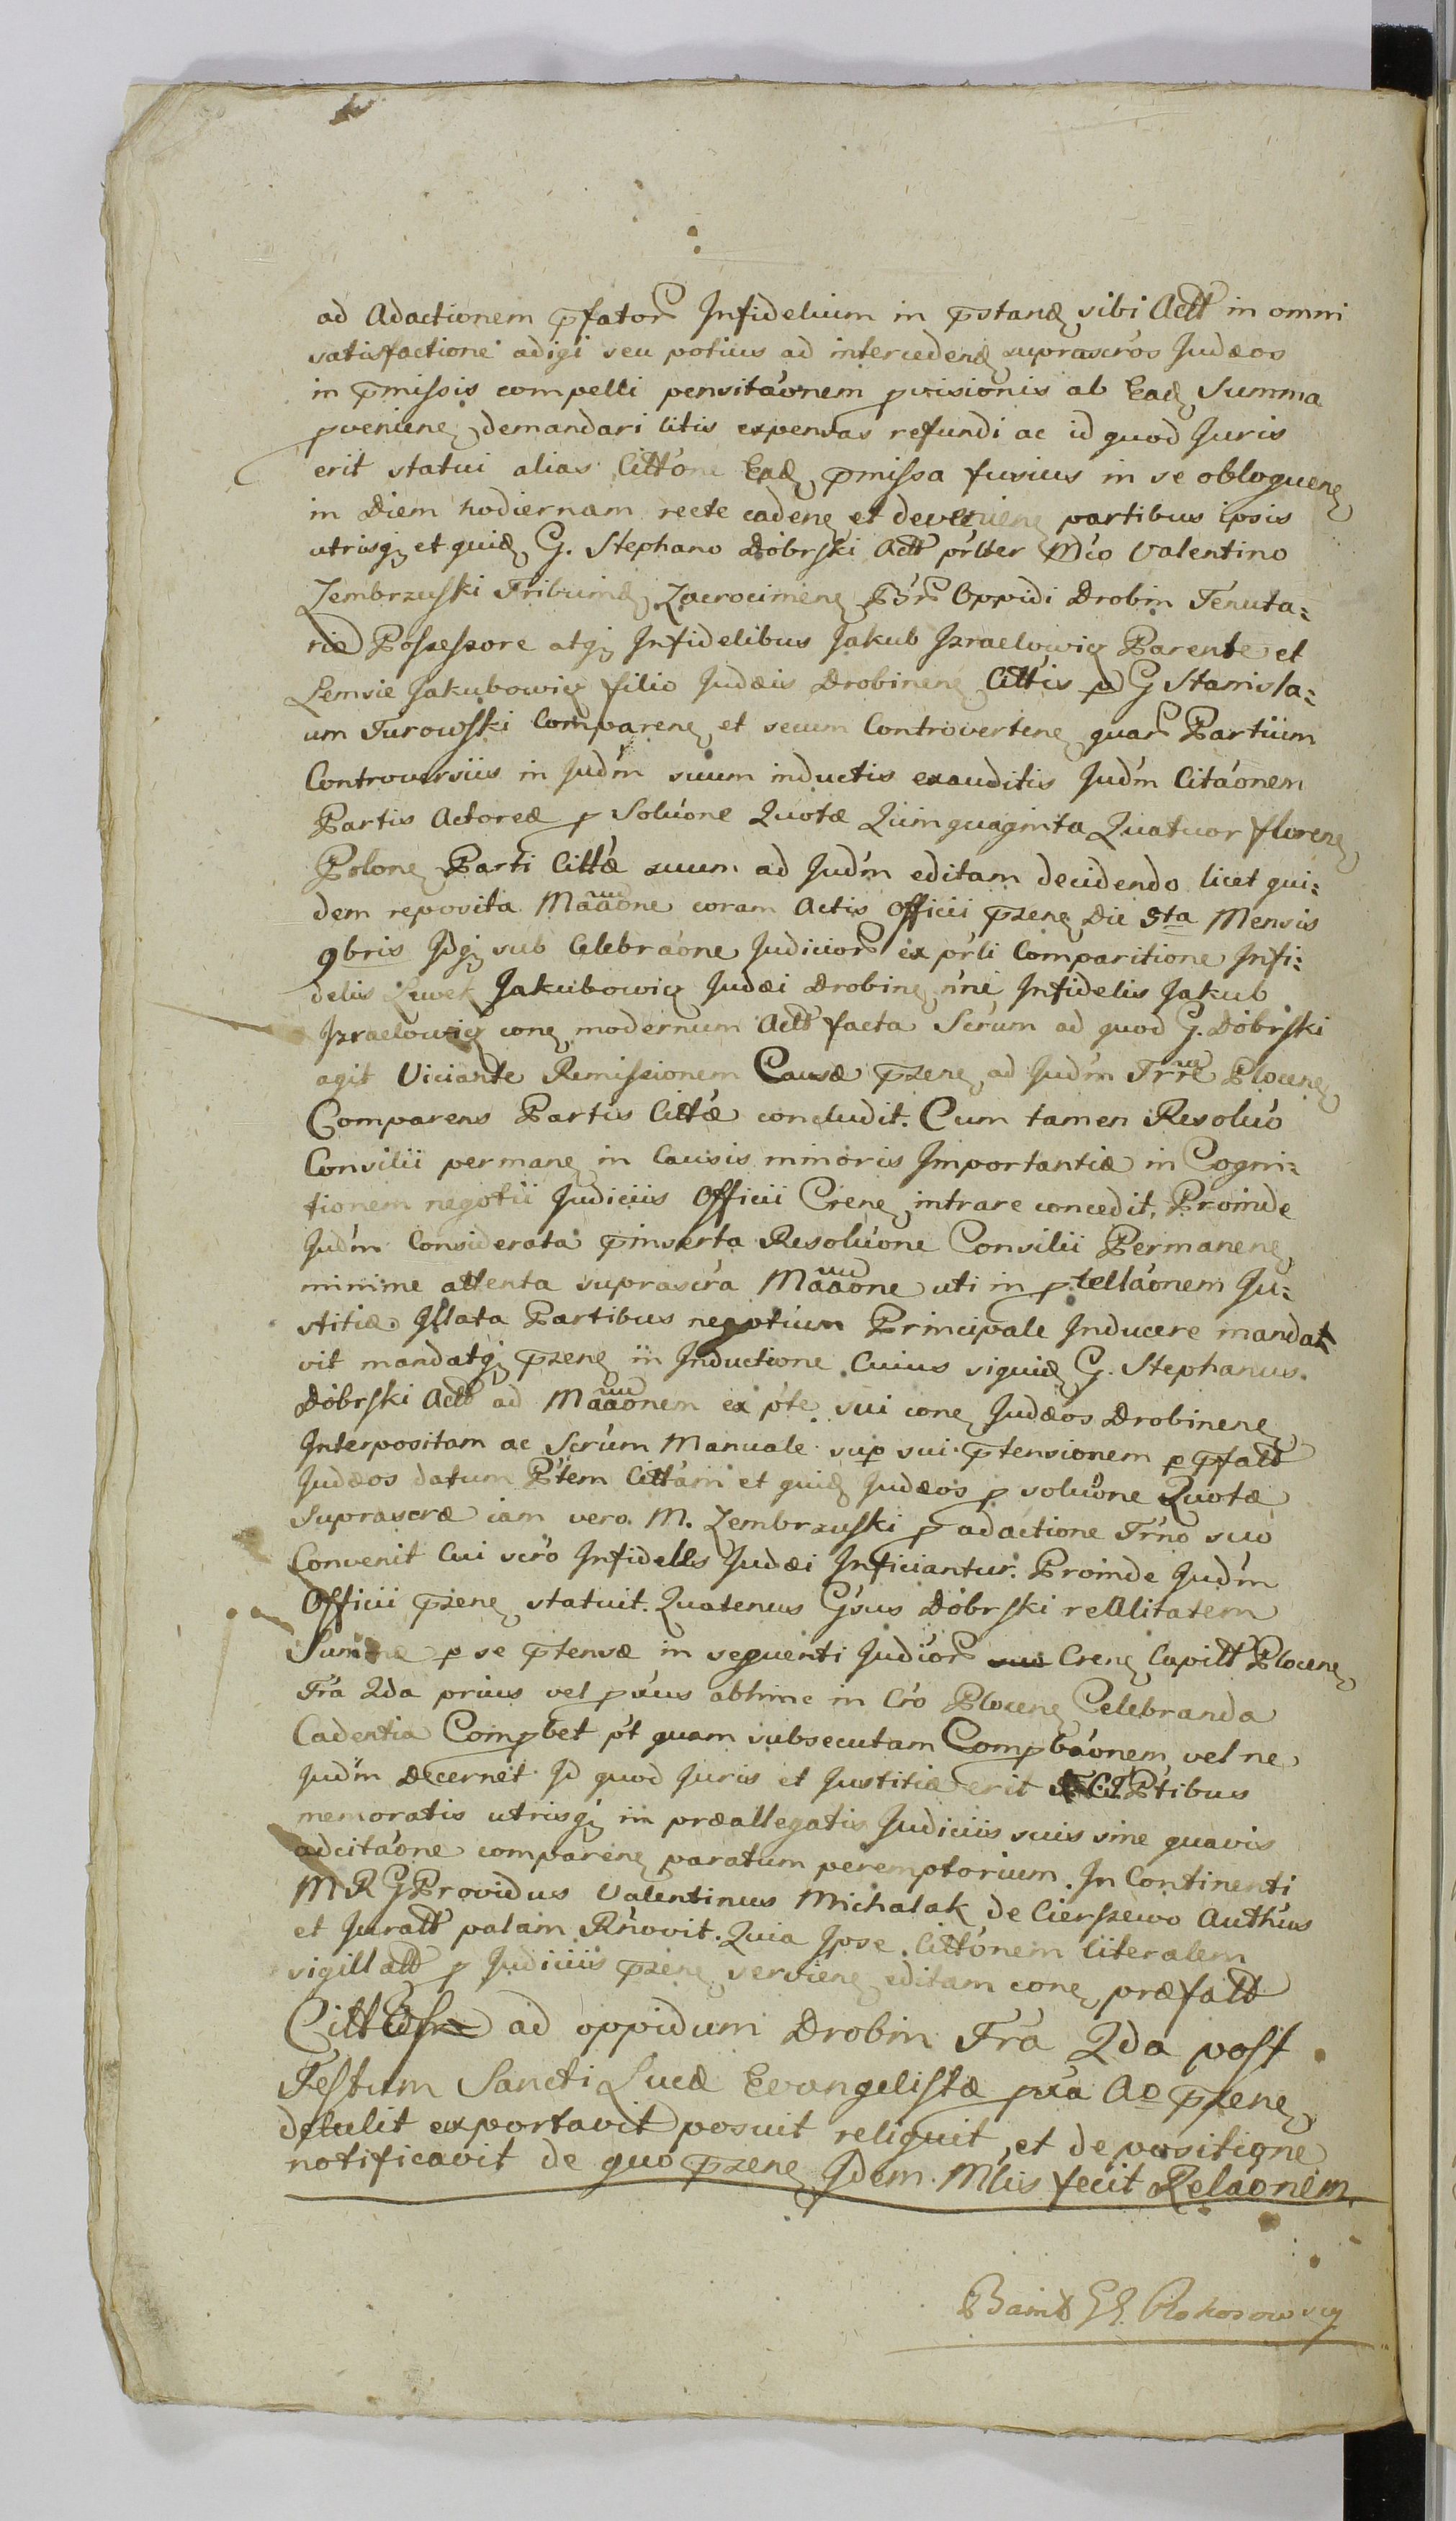 ad Adactionem p̄fator Infidelium in p̄stand sibi Actt in omni
satisfactione adigi seu potius ad intercedend suprascros Judæos
in p̄missis compelli pensitáonem pvisionis ab Ead Summa
pveniene demandari litis expensas refundi ac id quod Juris
erit statui alias Cittóne Ead p̄missa fusius in se obloquene
in Diem hodiernam recte cadene et deveniene partibus ipsis
utrisq et quid G. Stephano Dóbrski Actt prlter Mco Valentino
Zembrzuski Tribunid Zacrocimene Bór Oppidi Drobin Tenuta=
rie Possessore atq Infidelibus Jakub Izraelowicz Parente et
Lemsie Jakubowicz filio Judæis Drobinene Cittis p G Stanisla=
um Turowski Comparene et secum Controvertene quar Partium
Controversiis in Judm suum inductis exauditis Judm Citáonem
Partis Actoreæ p Solúone Quotæ Quinquaginta Quatuor florene
Polone Parti Cittæ suum ad Judm editam decidendo licet qui=
dem reposita Mãáone coram Actis Officii p̄zene Die 5ta Mensis
9bris Idq sub Celebráone Judicior ex prli Comparitione Infi=
delis Lewek Jakubowicz Judæi Drobine nni Infidelis Jakub
Izraelowicz cone modernum Actt facta Scrum ad quod G. Dóbrski
agit Viciante Remissionem Causæ p̄zene ad Judm Trre Plocene
Comparens Partis Cittæ concludit. Cum tamen Resolúo
Consilii permane in Causis minoris Importantiæ in Cogni=
tionem negotii Judiciis Officii Crene intrare concedit, Proinde
Judm Considerata p̄inserta Resolúone Consilii Permanene
minime attenta suprascra Mãáone uti in ptelláonem Ju=
stitiæ Illata Partibus negotium Principale Inducere mandat
vit mandatq p̄zene in Inductione Cuius siquid G. Stephanus
Dóbrski Actt ad Mãáonem ex pte sui cone Judæos Drobinene
Interpositam ac Scrum Manuale sup sui p̄tensionem p p̄fatt
Judæos datum Ptem Cittám et quid Judæos p solúone Quotæ
Suprascræ iam vero M. Zembrzuski p adactione Trno suo
Convenit Cui scro Infidelis Judæi Inficiantur. Proinde Judm
Officii p̄zene statuit. Quatenus Gsus Dóbrski reAlitatem
Summæ p se p̄tensæ in sequenti Judior Crene Capitt Plocene
Fra 2da prius vel pxus abhinc in Cro Plocene Celebranda
Cadentia Compbet pt quam subsecutam Compbáonem vel ne
Judm Decernet Id quod Juris et Justitiæ erit Ptibus
memoratis utrisq in præallegatis Judiciis suis sine quavis
adcitáone comparene paratum peremptorium. In Continenti
MRG Providus Valentinus Michalak de Cierszewo Authus
et Juratt palam Rnovit. Quia Ipse Cittónem literalem
sigillatt p Judiciis p̄zene serviene editam cone præfatt
Citt ad oppidum Drobin Fra 2da post
Festum Sancti Lucæ Evangelistæ pxa Ao p̄zene
detulit exportavit posuit reliquit et de positione
notificavit de quo p̄zene Idem Mlis fecit Reláonem.